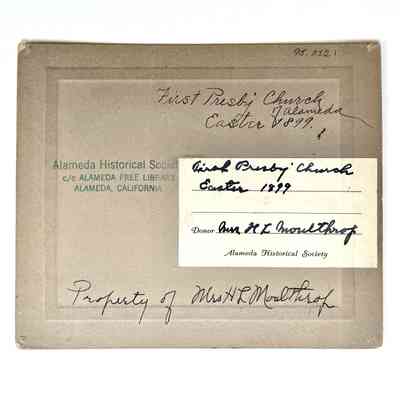 95.032.1
First Presby Church
Alameda
Easter 1899.
Alameda Historical Societ
c/o ALAMEDA FREE LIBRARY
ALAMEDA, CALIFORNIA
First Presby Church
Easter 1899
Donor Mrs H L Moulthrop
Alameda Historical Society
Property of Mrs H L Moulthrop